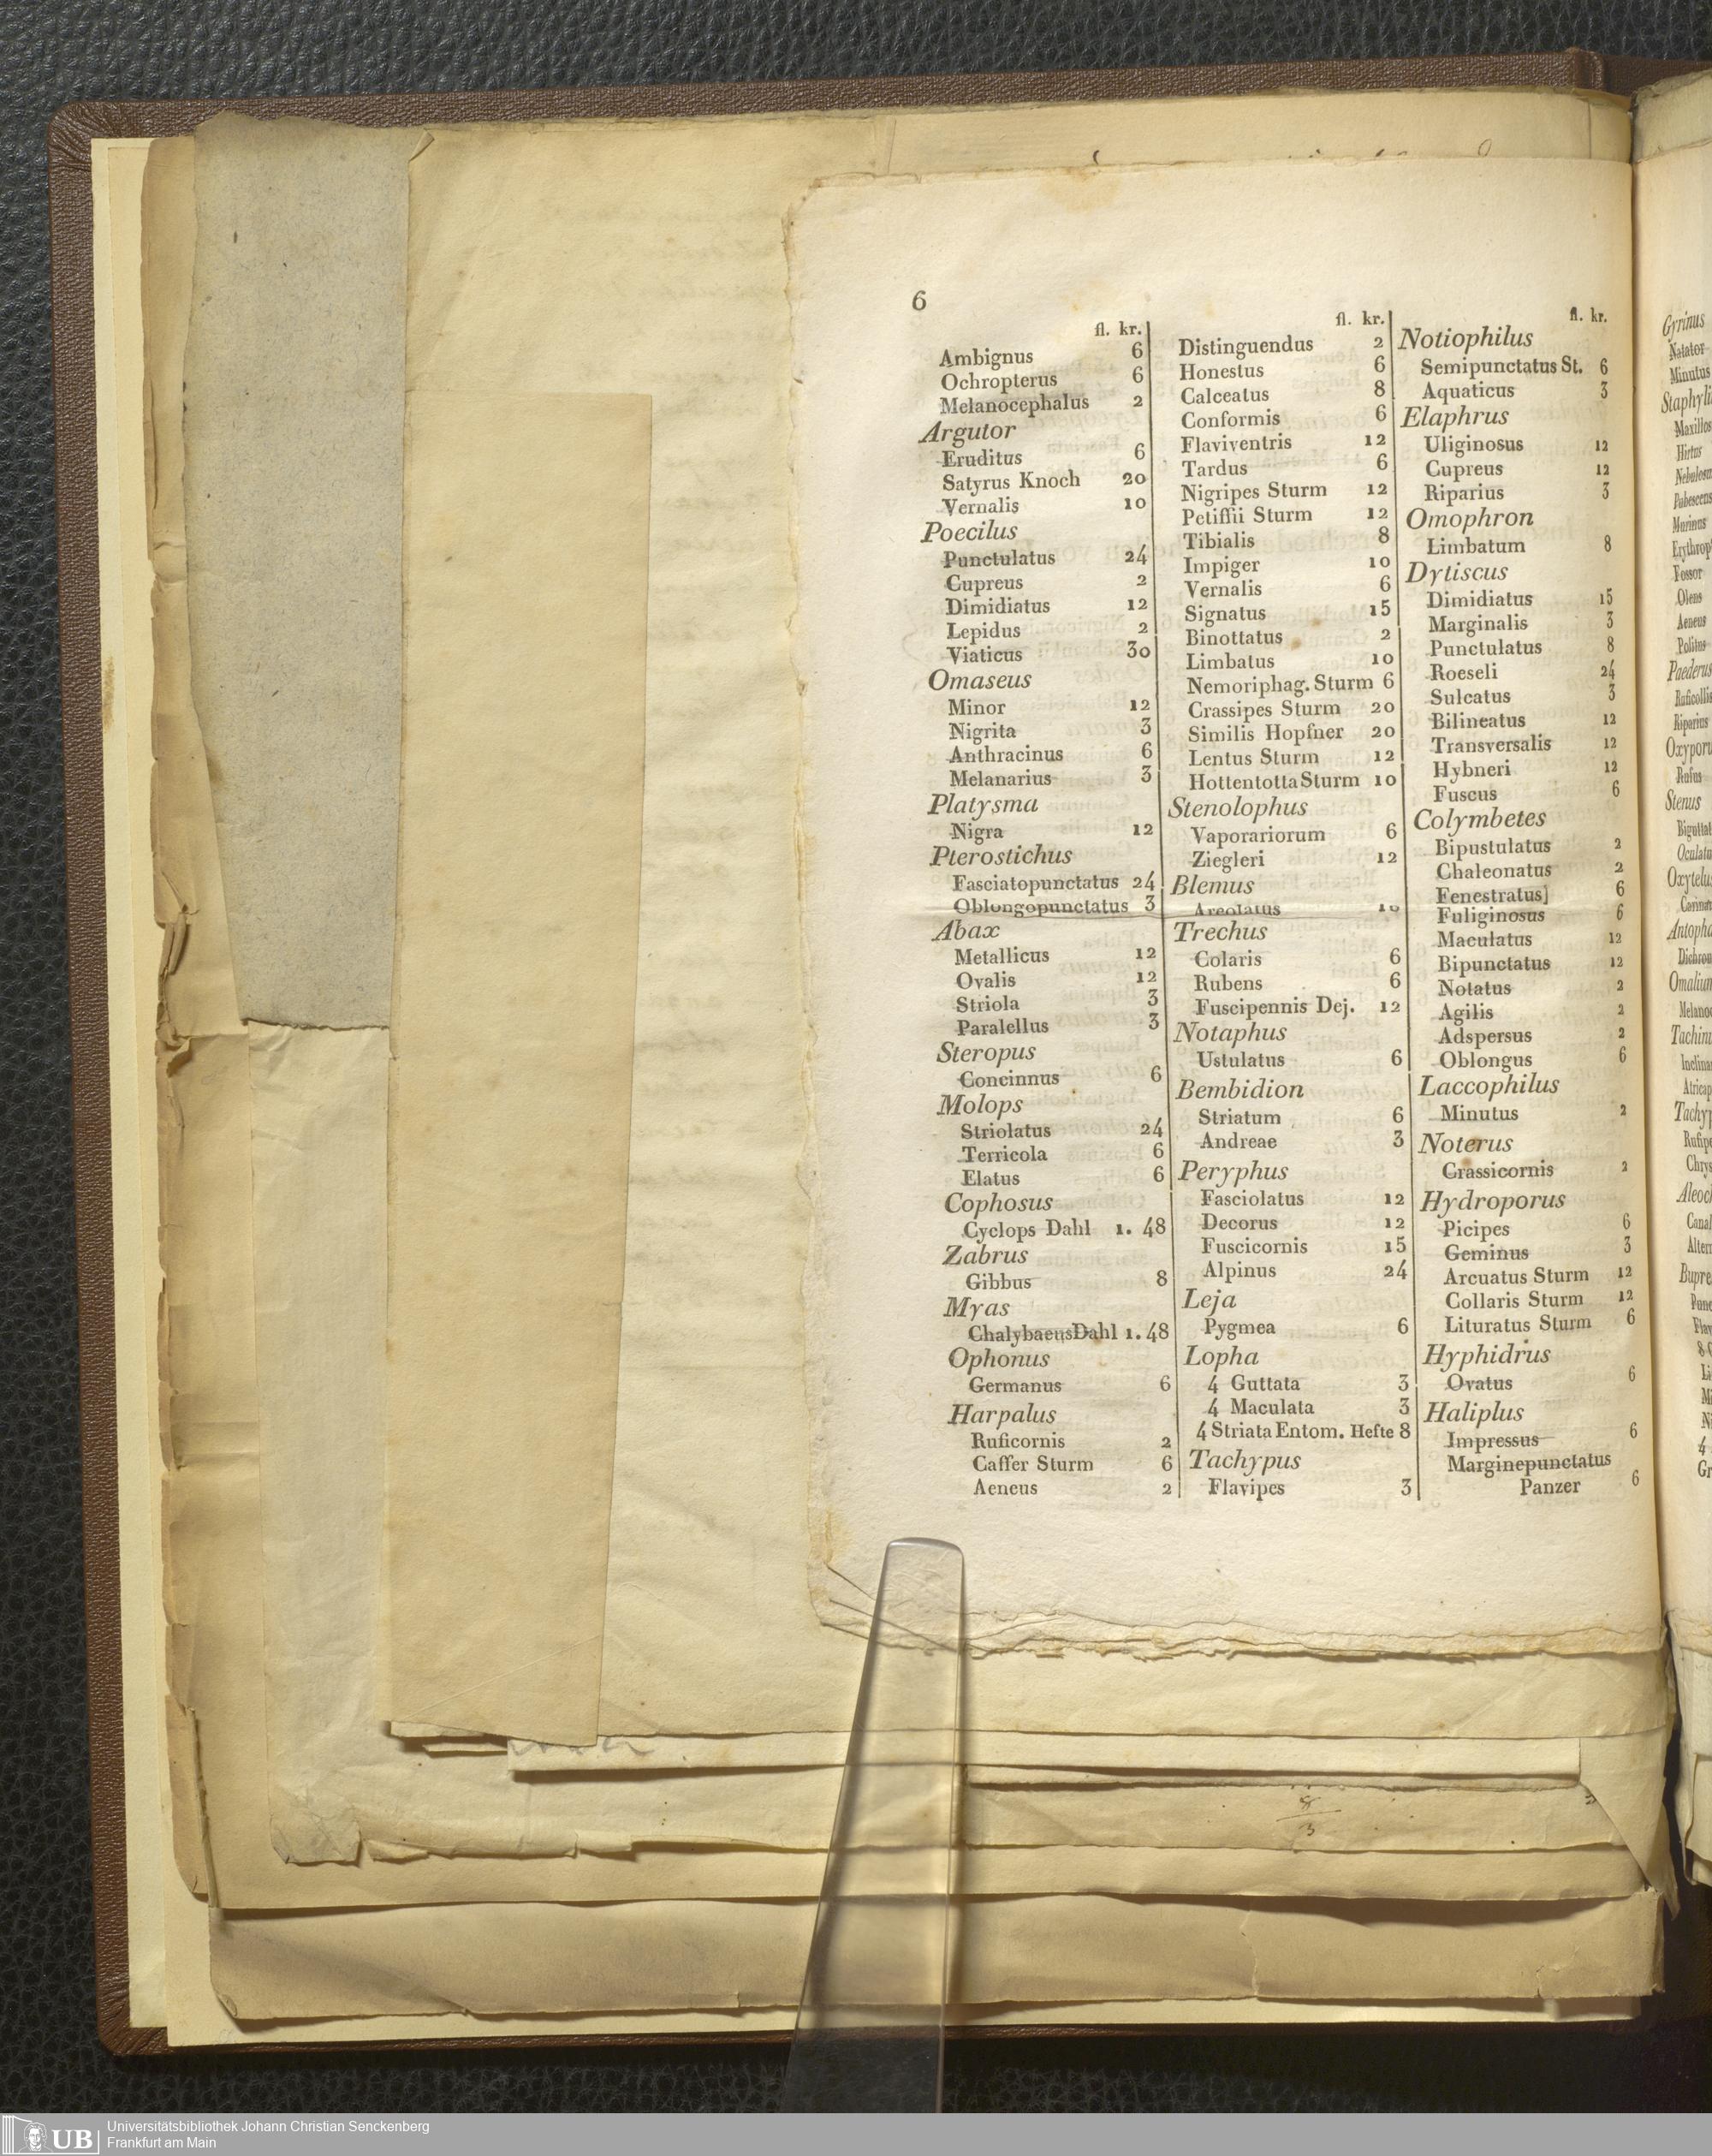 6
fl. kr.
Ambignus 6
Ochropterus 6
Melanocephalus 2
Argutor
Eruditus 6
Satyrus Knoch 20
Vernalis 10
Poecilus
Punctulatus 24
Cupreus 2
Dimidiatus 12
Lepidus 2
Viaticus 30
Omaseus
Minor 12
Nigrita 3
Anthracinus 6
Melanarius 3
Platysma
Nigra 12
Pterostichus
Fasciatopunctatus 24
Oblongopunctatus 3
Abax
Metallicus 12
Ovalis 12
Striola 3
Paralellus 3
Steropus
Concinnus 6
Molops
Striolatus 24
Terricola 6
Elatus 6
Cophosus
Cyclops Dahl 1. 48
Zabrus
Gibbus 8
Myas
Chalybaeus Dahl 1. 48
Ophonus
Germanus 6
Harpalus
Ruficornis 2
Caffer Sturm 6
Aeneus 2
fl. kr.
Distinguendus 2
Honestus 6
Calceatus 8
Conformis 6
Flaviventris 12
Tardus 6
Nigripes Sturm 12
Petiffii Sturm 12
Tibialis 8
Impiger 10
Vernalis 6
Signatus 15
Binottatus 2
Limbatus 10
Nemoriphag. Sturm 6
Crassipes Sturm 20
Similis Hopfner 20
Lentus Sturm 12
Hottentotta Sturm 10
Stenolophus
Vaporariorum 6
Ziegleri 12
Blemus
Areolatus
Trechus
Colaris 6
Rubens 6
Fuscipennis Dej. 12
Notaphus
Ustulatus 6
Bembidion
Striatum 6
Andreae 3
Peryphus
Fasciolatus 12
Decorus 12
Fuscicornis 15
Alpinus 24
Leja
Pygmea 6
Lopha
4 Guttata 3
4 Maculata 3
4 Striata Entom. Hefte 8
Tachypus
Flavipes 3
fl. kr.
Notiophilus
Semipunctatus St. 6
Aquaticus 3
Elaphrus
Uliginosus 12
Cupreus 12
Riparius 3
Omophron
Limbatum 8
Dytiscus
Dimidiatus 15
Marginalis 3
Punctulatus 8
Roeseli 24
Sulcatus 3
Bilineatus 12
Transversalis 12
Hybneri 12
Fuscus 6
Colymbetes
Bipustulatus 2
Chaleonatus 2
Fenestratus] 6
Fuliginosus 6
Maculatus 12
Bipunctatus 12
Notatus 2
Agilis 2
Adspersus 2
Oblongus 6
Laccophilus
Minutus 2
Noterus
Crassicornis 2
Hydroporus
Picipes 6
Geminus 3
Arcuatus Sturm 12
Collaris Sturm 12
Lituratus Sturm 6
Hyphidrus
Ovatus 6
Haliplus
Impressus 6
Marginepunctatus
Panzer 6
8
3
Gyrinus
Natator
Minutus
Hirtus
Fossor
Olens
Aeneus
Politus
Paederus
Riparius
Rufus
Stenus
UB Universitätsbibliothek Johann Christian Senckenberg
Frankfurt am Main